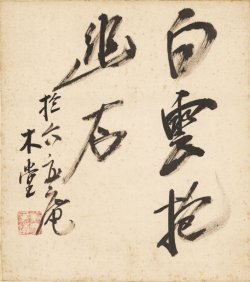 白雲抱
幽石
於六庵
木堂